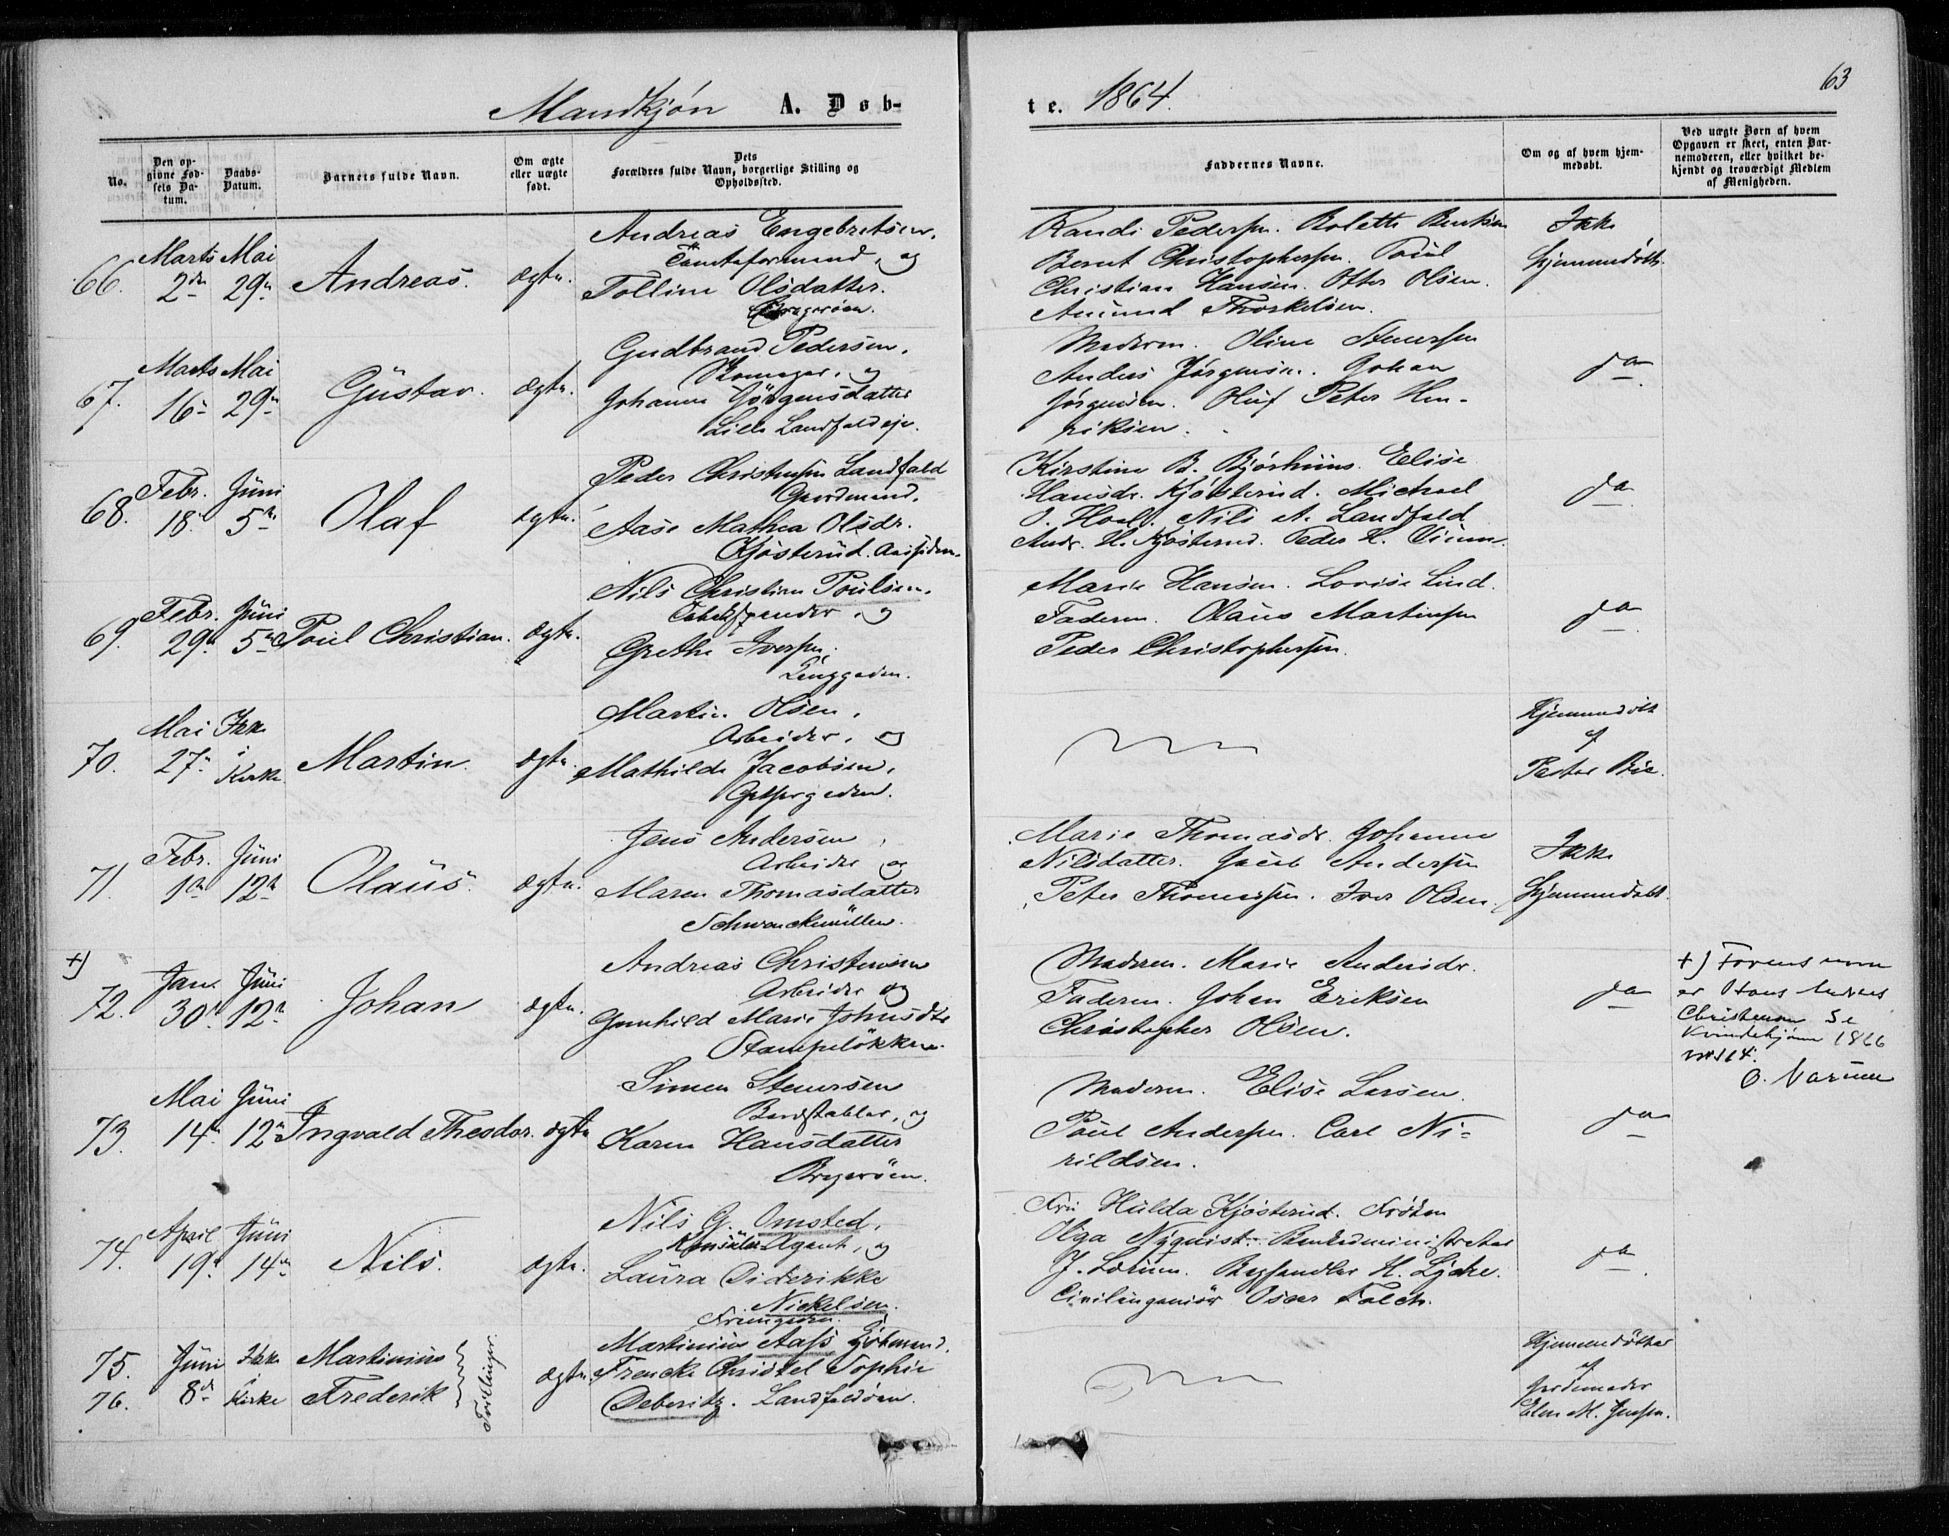 Mandkjøn A. Døb-
te. 1864.
63
No.
Den op-
givne Fød-
sels Da-
tum.
Daabs-
Datum.
Barnets fulde Navn.
Om ægte
eller uægte
født.
Dets
Forældres fulde Navn, borgerlige Stilling og
Opholdssted.
Faddernes Navne.
Om og af hvem hjem-
medøbt.
Ved uægte Børn af hvem
Opgaven er skeet, enten Bar-
nemoderen, eller hvilket be-
kjendt og troværdigt Medlem
af Menigheden.
66.
Marts
2den
Mai
29n
Andreas.
ægte.
Andreas Engebretsen,
Tomteformand, og
Tolline Olsdatter.
Bragerøen.
Randi Pedersen. Bolette
Bernt Christophersen. Poul
Christian Hansen. Otter Olsen.
Amund Thorkelsen.
Ikke
hjemmedøbt.
67.
Marts
16n
Mai
29n
Gustav.
ægte.
Gudbrand Pedersen,
Skomager, og
Johanne Jörgensdatter
Lille Landfaldeje.
Moderen. Oline Stenersen
Anders Jørgensen. Johan
Jørgensen. Oluf Peter Hen-
riksen.
do
68.
Febr.
18n
Juni
5n
Olaf
ægte.
Peder Christensen Landfald
Gaardmand,
Aase Mathea Olsdr.
Kjösterud.
Kirstine B. Bjørhuus. Elise
Hansdr. Kjösterud. Michael
O. Hoel. Nils A. Landfald
Andr. H. Kjösterud. Peder H.
do
69.
Febr.
29n
Juni
5n
Poul Christian.
ægte.
Nils Christian Poulsen,
Tobakspinder, og
Grethe Iversen.
Lenggaden.
Marie Hansen. Lovise Lind.
Faderen. Olaus Martinsen
Peder Christophersen.
do
70.
Mai
27n
Ikke
i
Kirke
Martin.
ægte.
Martin Olsen,
Arbeider, og
Mathilde Jacobsen,
Hjemmedøbt
af
Pastor
71.
Febr.
1n
Juni
12n
Olaus.
ægte.
Jens Andersen,
Arbeider og
Maren Thomasdatter
Schwenckemüllen.
Marie Thomasdr. Johanne
Nilsdatter. Jacob Andersen
Peter Thomasen. Iver Olsen.
Ikke
hjemmedøbt.
+)
72.
Jan.
30n
Juni
12n
Johan
ægte.
Andreas Christensen
Arbeider og
Gunhild Marie Johnsdtr
Stampeløkken.
Moderen. Marie Andersdr.
Faderen. Johan Eriksen
Christopher Olsen.
do
+)
er Hans
Christensen Se
Kvindekjønn 1866
No 114.
73.
Mai
14n
Juni
12n
Ingvald Theodor.
ægte
Simen Stenersen
Bordstabler, og
Karen Hansdatter
Bragerøen.
Moderen. Elise Larsen.
Poul Andersen. Carl Ni-
rildsen.
do
74.
April
19n
Juni
14n
Nils.
ægte.
Nils G. Omsted,
Agent, og
Laura Diderikke
Nickelsen.
Fru Hulda Kjösterud. Frøken
Olga Nyquist. Bankadministrator
J. Lorum. Boghandler H. Lyche.
Civilingeniør Oscar Falch.
do
75.
76.
Juni
8d
Ikke
i
Kirke
Martinius
Frederik
Tvillinger.
ægte.
Martinius Aass
Frencke Christel Sophie
Deberitz. Landfaldøen.
Hjemmedøbte
af
Jordemoder
Elen M. Jensen.